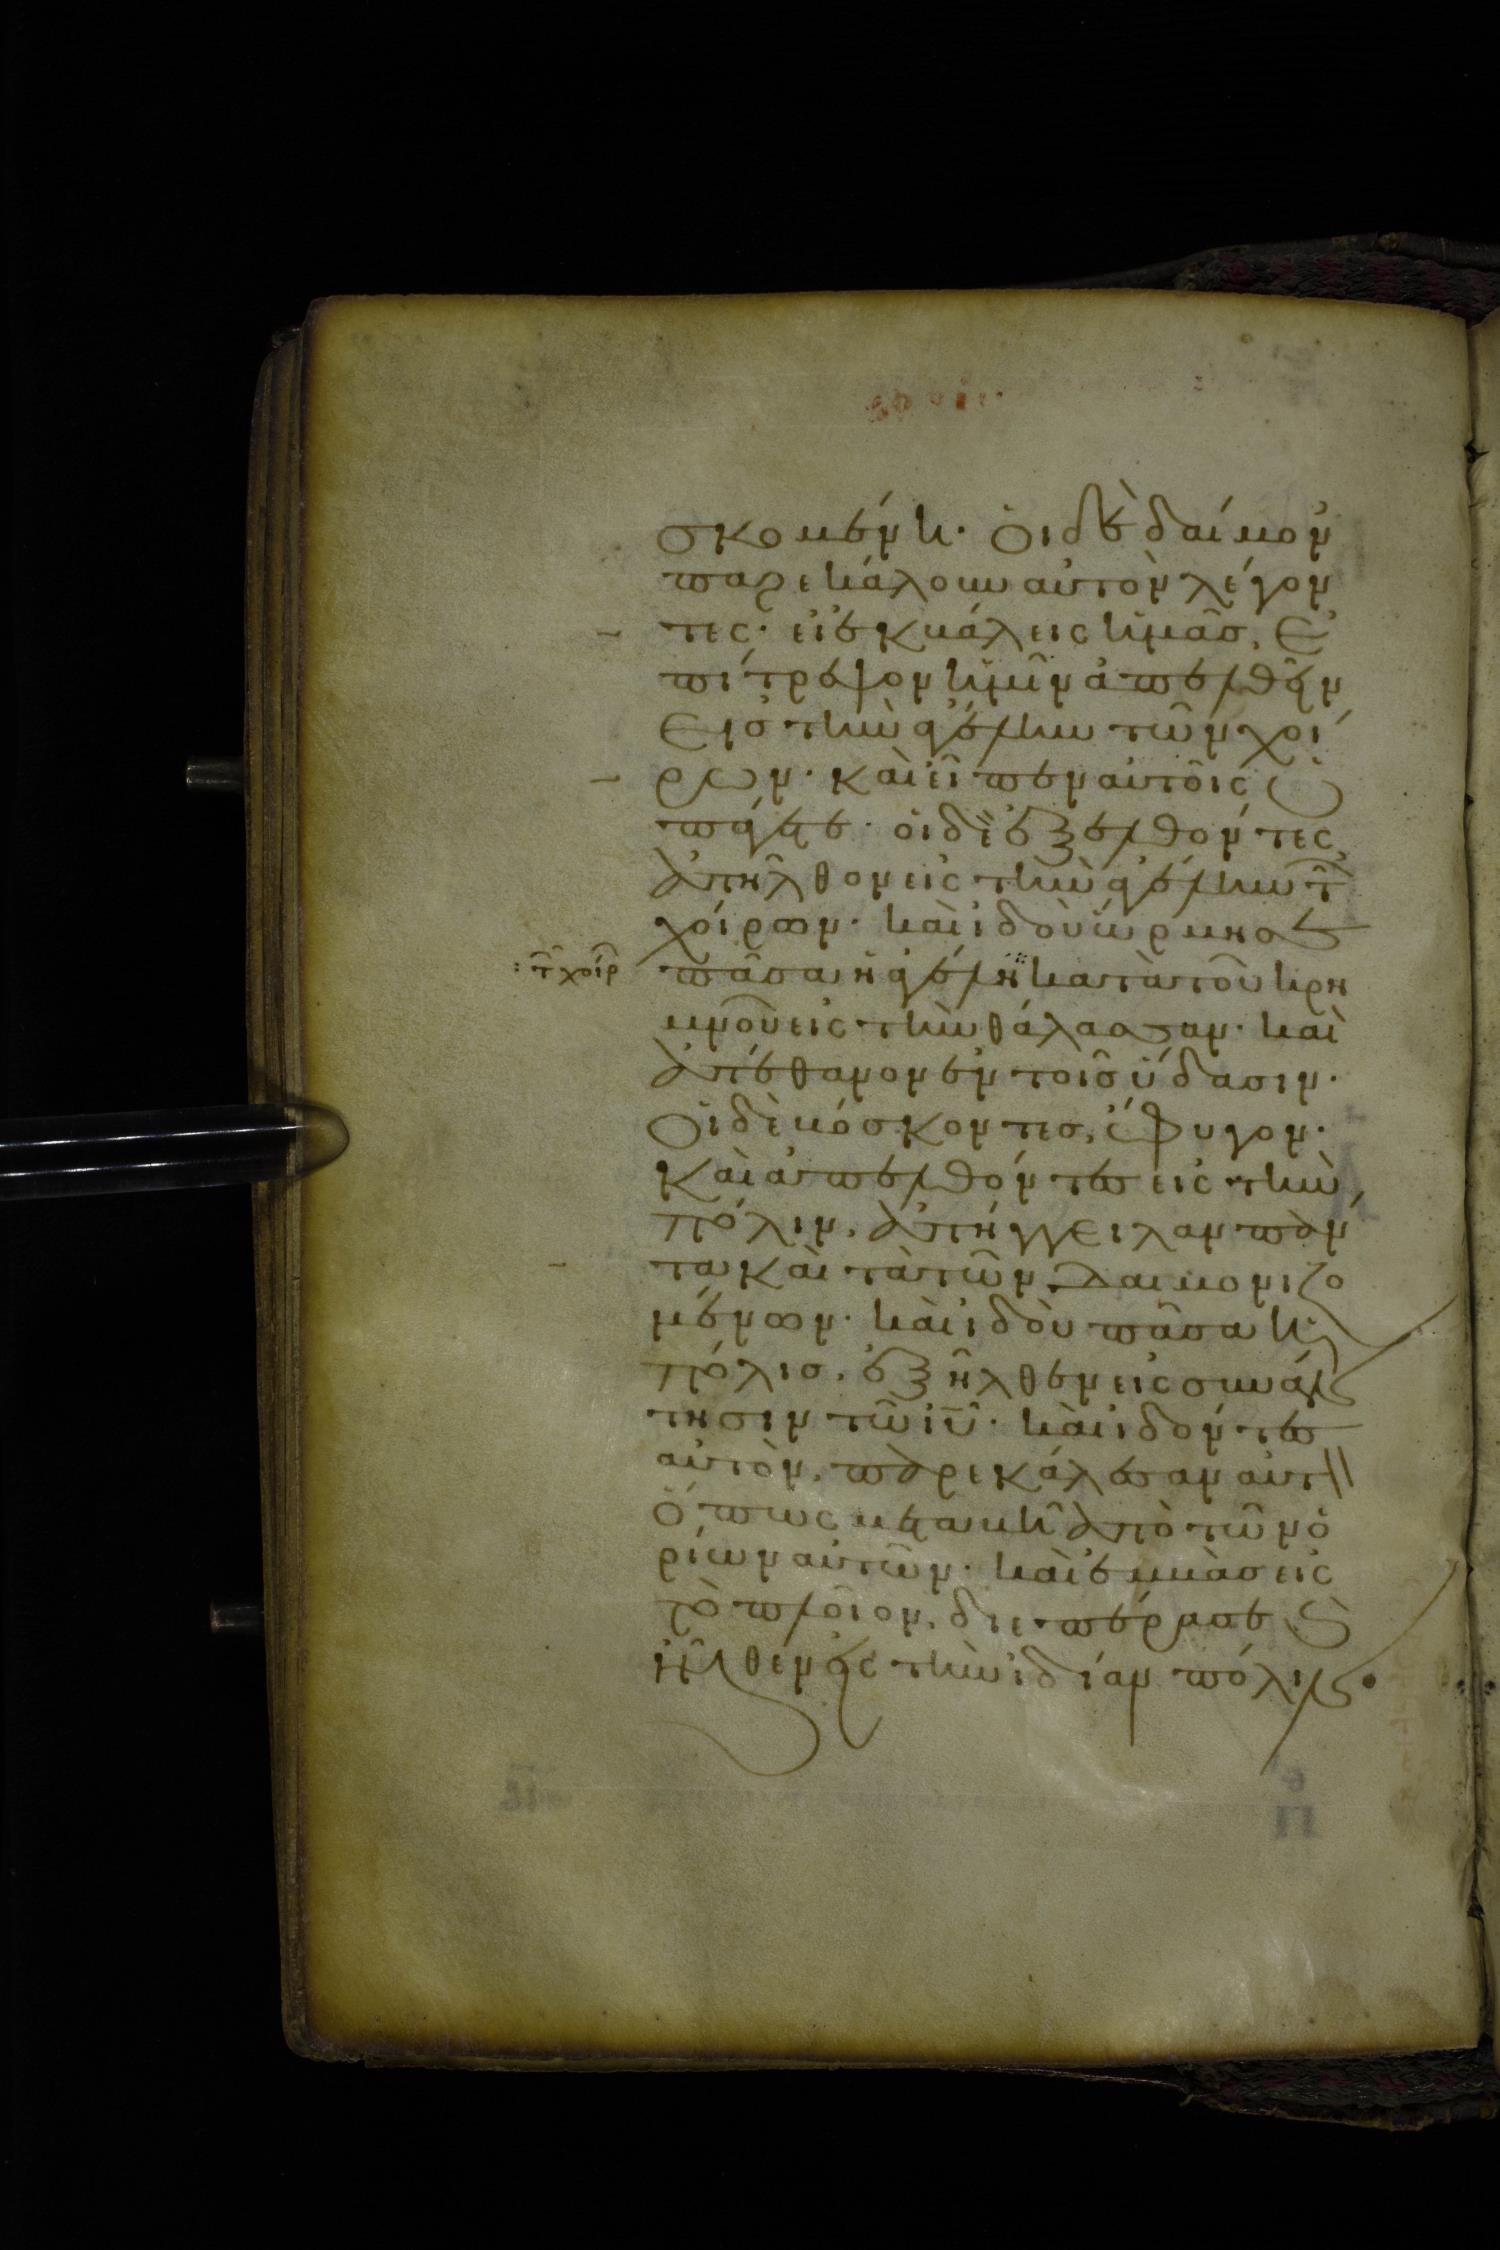 σκομένη· οἱ δὲ δαίμον
παρεκάλουν αὐτὸν λέγον
τες· εἰ ἐκβάλεις ἡμᾶσ, Ἐ
πίτρεψον ἡμῖν ἀπελθεῖν
Εἰσ τὴν ἀγέλην τῶν χοί
ρων· καὶ εἶπεν αὐτοῖς Ὑ
πάγετε· οἱ δὲ ἐξελθόντες
ἀπῆλθον εἰς τὴν ἀγέλην τ̑
χοίρων· καὶ ἰδοὺ ὥρμησε
: τ̑ χοίρ πᾶσα ἡ ἀγέλη κατὰ τοῦ κρη
μνοῦ εἰς τὴν θάλασσαν· καὶ
ἀπέθανον ἐν τοῖσ ὕδασιν·
Οἱ δὲ βόσκοντεσ, ἔφυγον·
Καὶ ἀπελθόντες εἰς τὴν
πόλιν, ἀπήγγειλαν πάν
τα καὶ τὰ τῶν δαιμονιζο
μένων· καὶ ἰδοὺ πᾶσα ἡ
πόλισ, ἐξῆλθεν εἰς συνάν
τησιν τῶ ιυ̅· καὶ ἰδόντες
αὐτὸν, παρεκάλεσαν αὐτ
Ὅπως μεταβῆ ἀπὸ τῶν ὁ
ρίων αὐτῶν· καὶ ἐμβὰσ εἰς
τὸ πλοῖον, διεπέρασε ϗ
ἦλθεν εἰς τὴν ἰδίαν πόλιν·